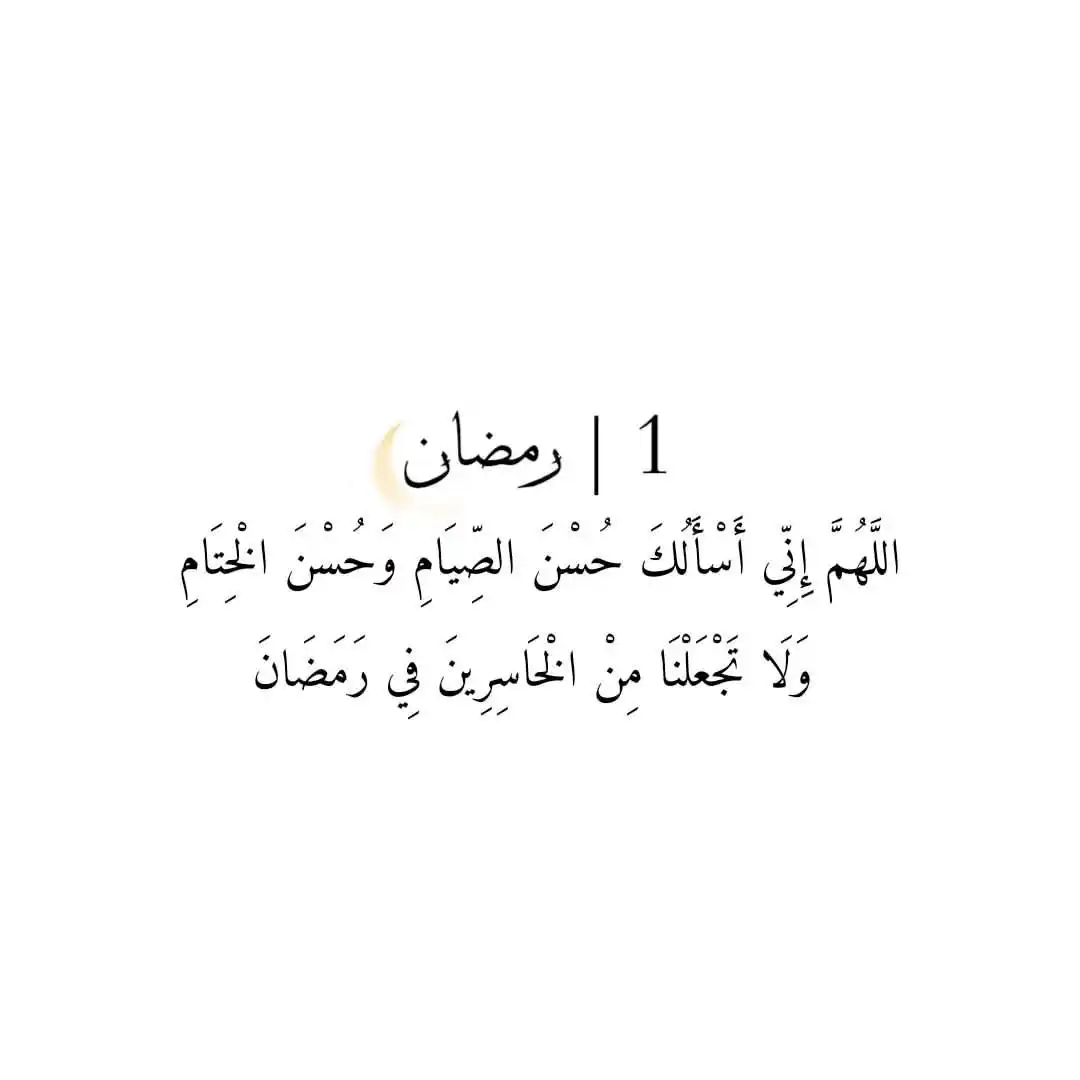 1 | رمضان
اللَّهُمَّ إِنِّي أَسْأَلُكَ حُسْنَ الصِّيَامِ وَحُسْنَ الْخِتَامِ
وَلَا تَجْعَلْنَا مِنْ الْخَاسِرِينَ فِي رَمَضَانَ